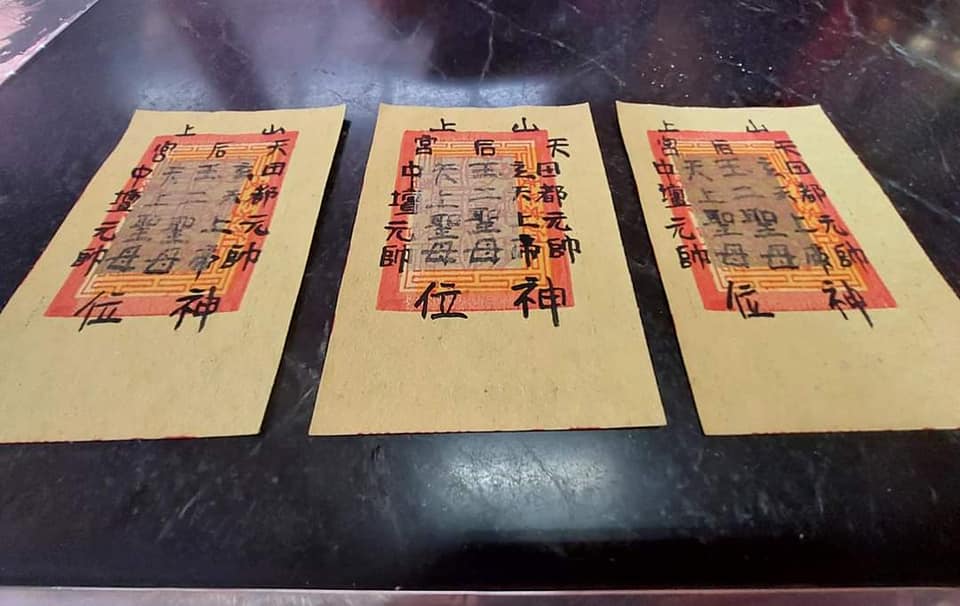 山上
天后宮
田都元帥
玄天上帝
王二聖母
天上聖母
中壇元帥
神位
山上
天后宮
田都元帥
玄天上帝
王二聖母
天上聖母
中壇元帥
神位
山上
天后宮
田都元帥
玄天上帝
王二聖母
天上聖母
中壇元帥
神位